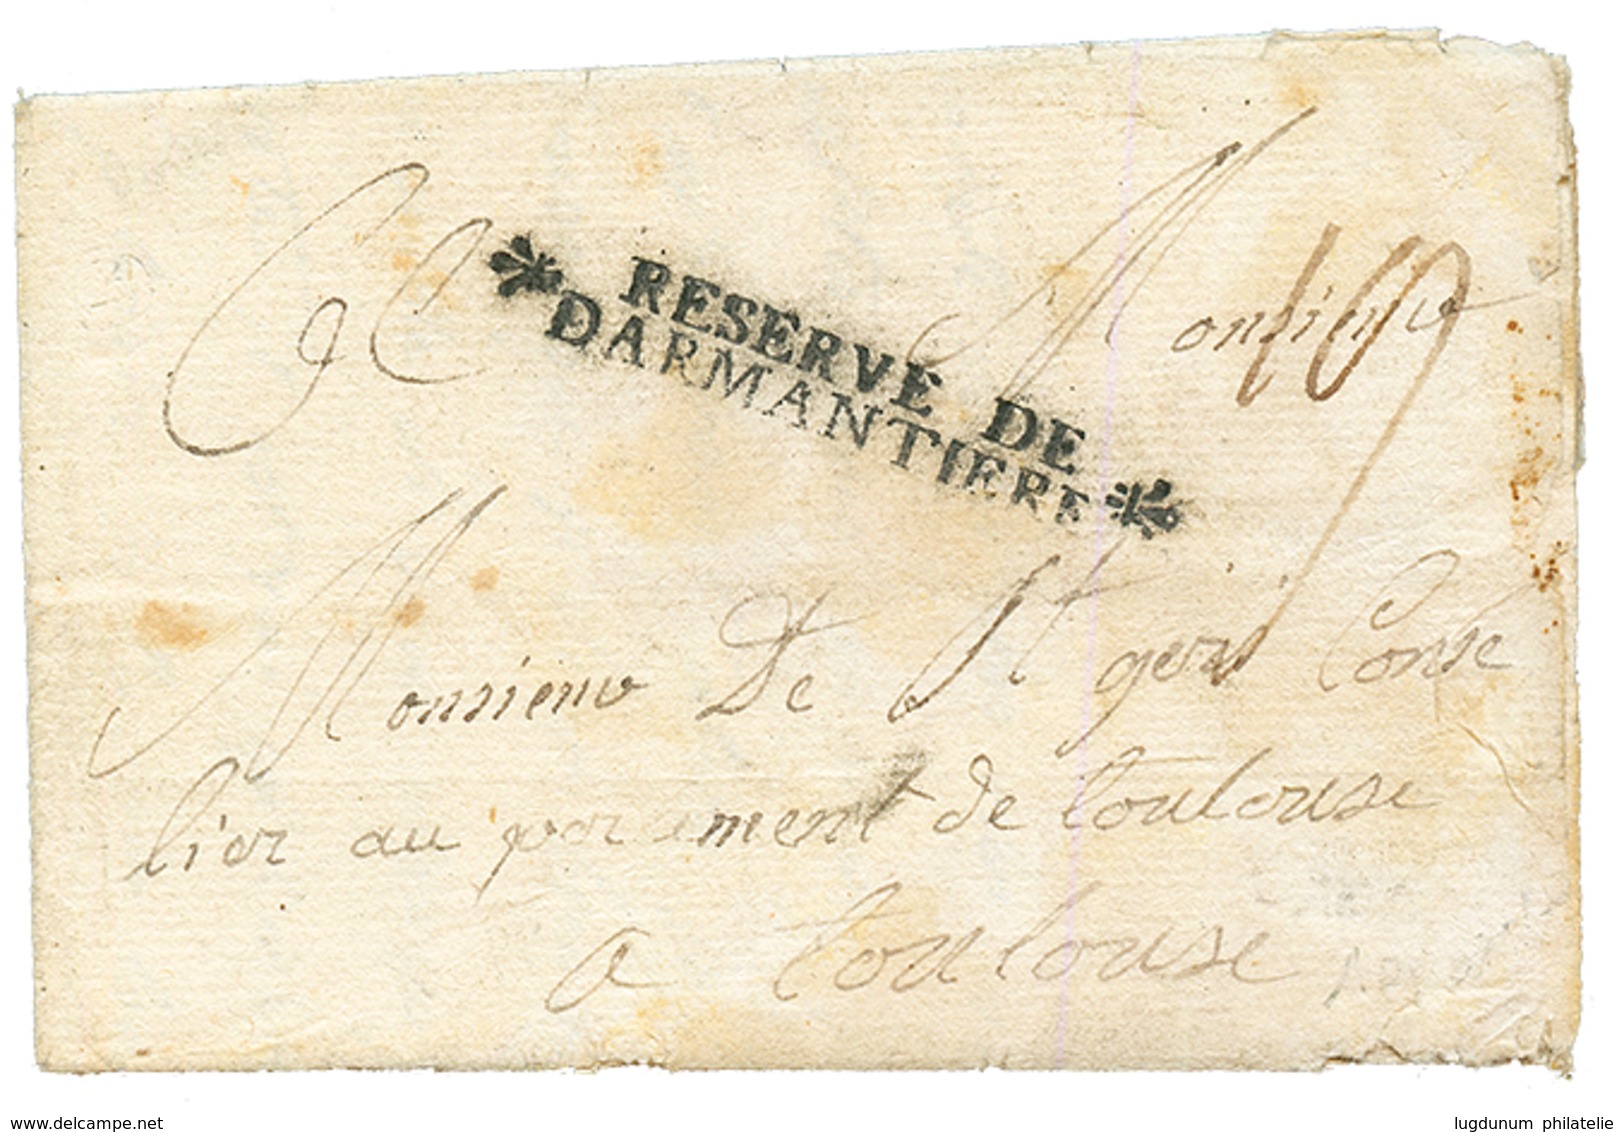 RESERVE DE
DARMANTIERE
Monsieur
19
Monsieur De St geri Conse
lier au parement de toulouse
a toulouse
delcampe.net
lugdunum philatelie